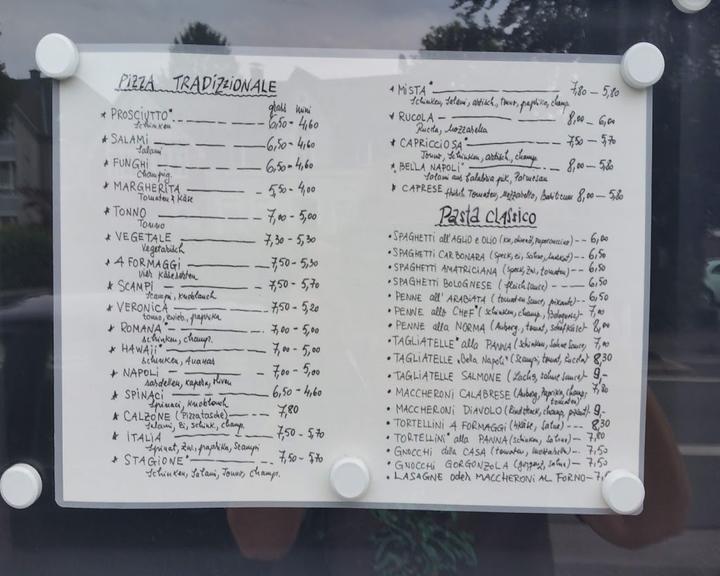 PIZZA TRADIZZIONALE
groß mini
* PROSCIUTTO* 6,50 - 4,60
Schinken
* SALAMI 6,50 - 4,60
Salami
* FUNGHI 6,50 - 4,60
Champig.
* MARGHERITA 5,50 - 4,00
Tomaten & Käse
* TONNO 7,00 - 5,00
Tonno
* VEGETALE 7,30 - 5,30
Vegetarisch
* 4 FORMAGGI 7,50 - 5,30
Vier Käsesorten
* SCAMPI 7,50 - 5,70
Scampi, Knoblauch
* VERONICA 7,50 - 5,20
tonno, zwieb., paprika
* ROMANA* 7,00 - 5,00
schinken, champ.
* HAWAII* 7,00 - 5,00
schinken, Ananas
* NAPOLI 7,00 - 5,00
sardellen, kapern, oliven
* SPINACI 6,50 - 4,60
Spinaci, Knoblauch
* CALZONE (Pizzatasche) 7,80
Salami, Ei, schink, champ.
* ITALIA 7,50 - 5,70
Spinat, Zwi., paprika, Scampi
* STAGIONE* 7,50 - 5,70
Schinken, Salami, Tonno, Champ.
* MISTA* 7,80 - 5,80
Schinken, Salami, artisch., tonno, paprika, champ.
* RUCOLA 8,00 - 6,00
Rucola, Mozzarella
* CAPRICCIOSA* 7,50 - 5,70
Tonno, Schinken, artisch., champ.
* BELLA NAPOLI* 8,00 - 5,80
Salami aus Calabria pik., Parmesan
* CAPRESE Frisch Tomaten, Mozzarella, Basilicum 8,00 - 5,80
Pasta Classico
• SPAGHETTI all'AGLIO e OLIO 6,00
• SPAGHETTI CARBONARA (speck, ei, sahne, 6,50
• SPAGHETTI AMATRICIANA (speck, zwi, tomaten) 6,50
• SPAGHETTI BOLOGNESE (fleischsauce) 6,50
• PENNE all' ARABIATA (tomaten sauce, pikante) 6,50
• PENNE alla CHEF* (schinken, champ., Bolognese) 7,00
• PENNE alla NORMA (Auberg., tomat, schafkäse) 8,00
• TAGLIATELLE* alla PANNA (schinken, sahne sauce) 7,00
• TAGLIATELLE "Bella Napoli" (Scampi, tomat, Rucola) 8,30
• TAGLIATELLE SALMONE (Lachs, sahne sauce) 9,-
• MACCHERONI CALABRESE (Auberg, Paprika, champ, tomaten) 7,80
• MACCHERONI DIAVOLO (Rindsteak, champ, pikant) 9,-
• TORTELLINI 4 FORMAGGI (4Käse, Sahne) 8,30
• TORTELLINI* alla PANNA (schinken, Sahne) 7,80
• GNOCCHI della CASA (tomaten, mozzarella) 7,50
• GNOCCHI GORGONZOLA (gorgoz, sahne) 7,50
• LASAGNE oder MACCHERONI AL FORNO